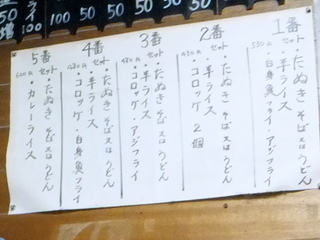 50
増
ライス
100
50
50
50
50
50
1番
セット
550円
・たぬきそば又はうどん
・半ライス
・白身魚フライ・アジフライ
2番
セット
480円
・たぬきそば又はうどん
・半ライス
・コロッケ2個
3番
セット
480円
・たぬきそば又はうどん
・半ライス
・コロッケ・アジフライ
4番
セット
480円
・たぬきそば又はうどん
・半ライス
・コロッケ・白身魚フライ
5番
セット
600円
・たぬきそば又はうどん
・カレーライス